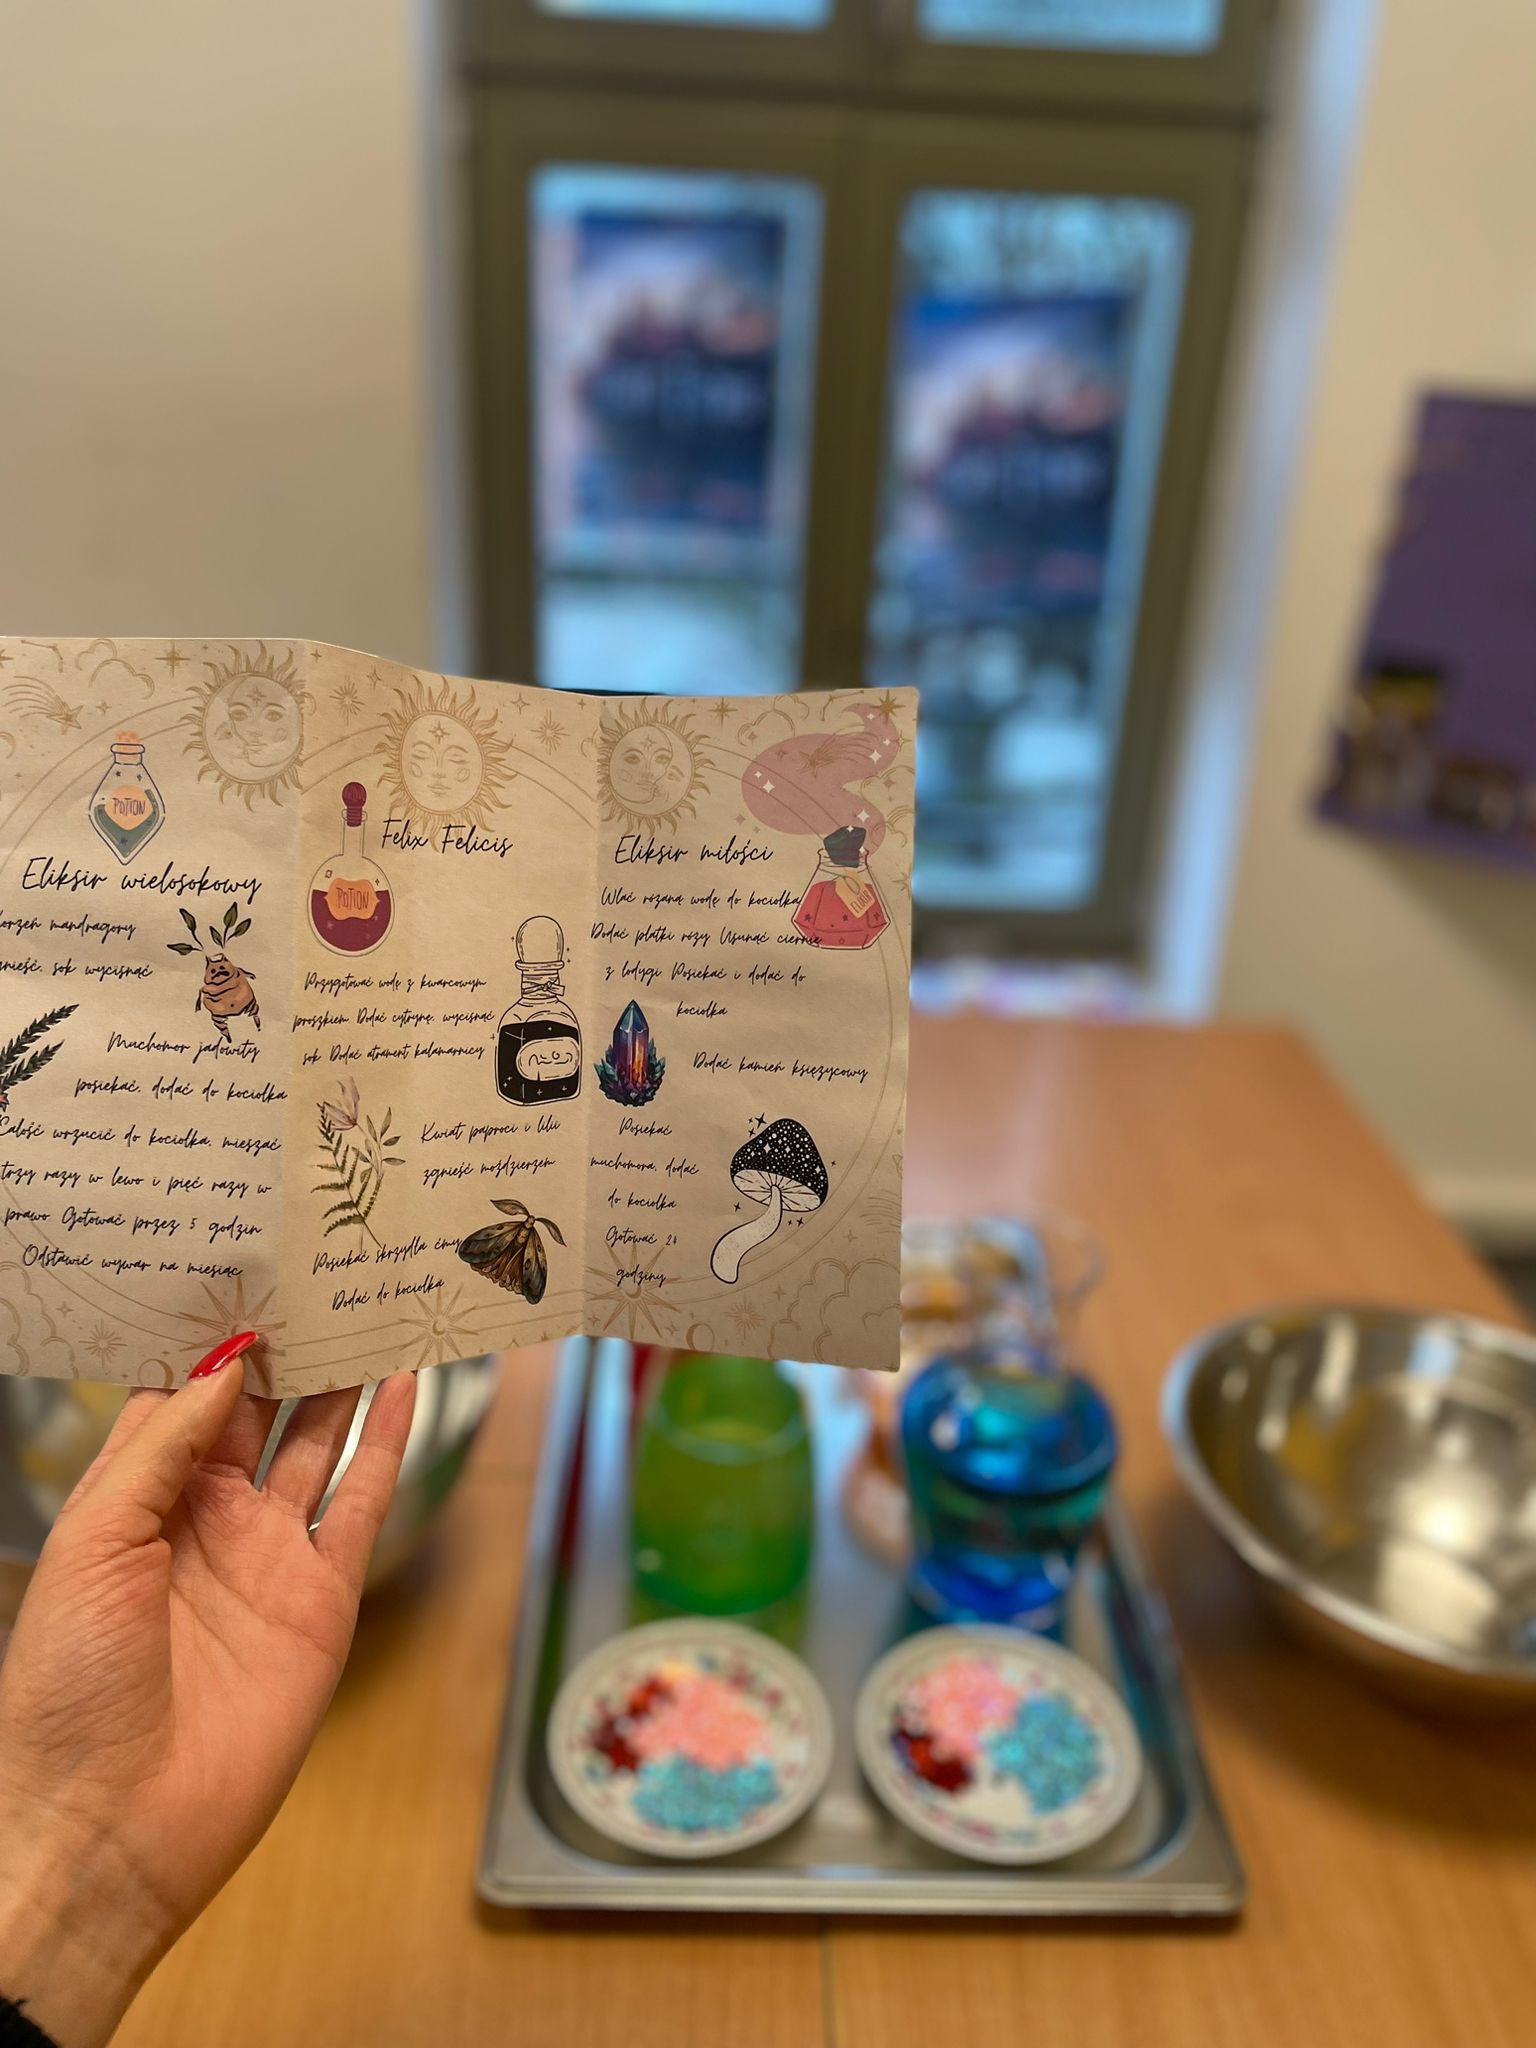 POTION
Eliksir wielosokowy
mandragory
sok wycisnąć
Muchomor jadowity
posiekać, dodać do kociołka
Całość wrzucić do kociołka, mieszać
trzy razy w lewo i pięć razy w
prawo Gotować przez 5 godzin
Odstawić wywar na miesiąc
Felix Felicis
POTION
Przygotować wodę z kwarcowym
proszkiem Dodać cytrynę, wycisnąć
sok Dodać atrament kałamarnicy
Kwiat paproci i lilii
zgnieść moździerzem
Posiekać skrzydła ćmy
Dodać do kociołka
Eliksir miłości
Wlać różaną wodę do kociołka
Dodać płatki róży Usunąć ciernie
z łodygi Posiekać i dodać do
kociołka
ELIXIR
Dodać kamień księżycowy
Posiekać
muchomora, dodać
do kociołka
Gotować 24
godziny